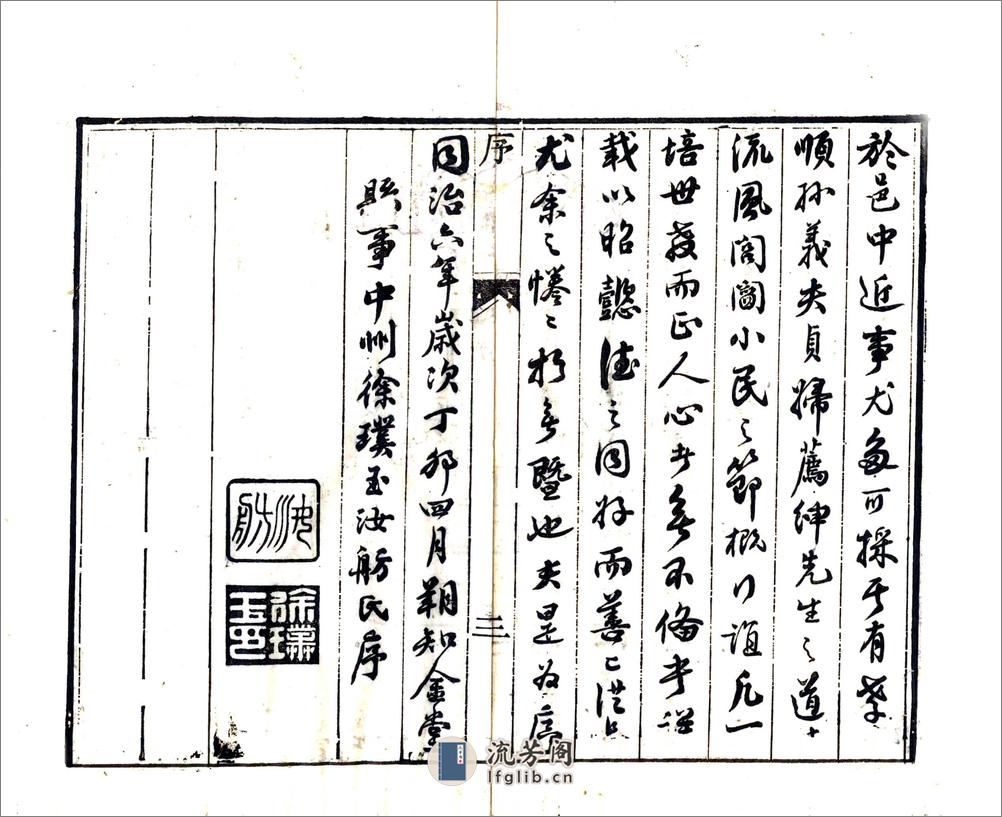 於邑中近事尤多可採其有孝
順孫義夫貞婦薦紳先生之道
流風閭閻小民之節概行誼凡一
培世教而正人心者無不備書
載以昭懿德之同好而善善從長
尤余之惓惓於無暨也夫是為序
序
三
同治六年歲次丁卯四月朔知金堂
縣事中州徐璞玉汝舫氏序
汝舫
徐璞玉印
流芳阁
lfglib.cn